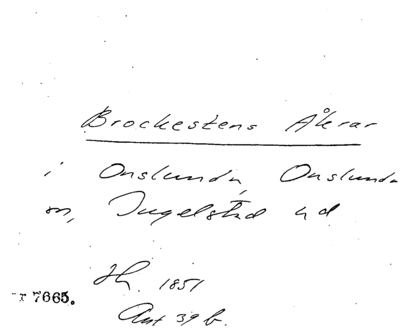 Brockestens Åkrar
i Onslunda, Onslunda
sn, Ingelstad hd
Hh. 1851
Ant 39 b.
r 7665.